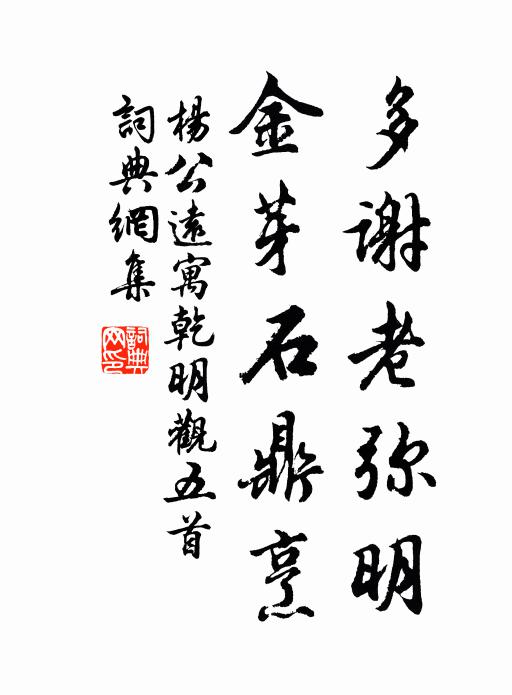 多谢老弥明
金芽石鼎烹
楊公遠寓乾明觀五首
詞典網集
詞典網印